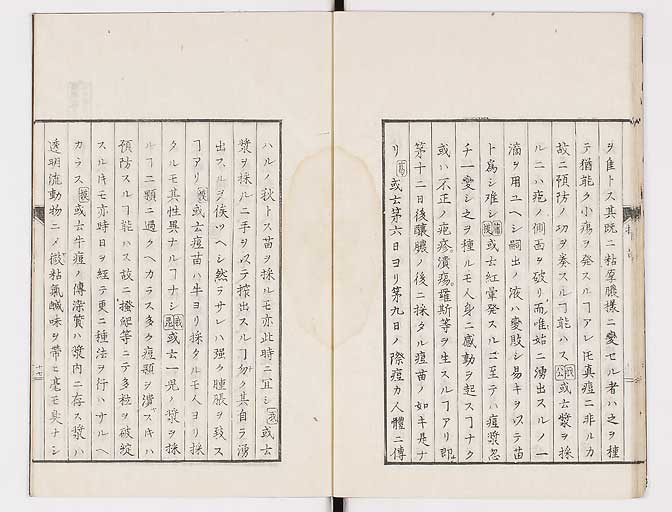 ヲ隹トス其既ニ粘厚膿様ニ變セル者ハ之ヲ種
テ猶能ク小瘍ヲ発スルヿアレ𪜈真痘ニ非ルカ
故ニ預防ノ功ヲ奏スルヿ能ハス 或云漿ヲ採
ルニハ疱ノ側面ヲ破リ而唯始ニ湧出スルノ一
滴ヲ用ユヘシ嗣出ノ液ハ變敗シ易キヲ以テ苗
ト為シ難シ 或云紅暈発スルニ至テハ痘漿忽
チ一變シ之ヲ種ルモ人身ニ感動ヲ起スヿナク
或ハ不正ノ疱疹潰瘍羅斯等ヲ生スルヿアリ即
第十二日後釀膿ノ後ニ採タル痘苗ノ如キ是ナ
リ 或云第六日ヨリ第九日ノ際痘力人體ニ傳
ハルノ秋トス苗ヲ採ルモ亦此時ニ宜シ 或云
漿ヲ採ルニ手ヲ以テ搾出スルヿ勿ク其自ラ湧
出スルヲ俟ツヘシ然ラサレハ強ク腫脹ヲ致ス
ヿアリ 或云痘苗ハ牛ヨリ採タルモ人ヨリ採
タルモ其性異ナルヿナシ 或云一児ノ漿ヲ採
ルヿ二顆ニ過クヘカラス多ク痘顆ヲ潰スキハ
預防スルヿ能ハス故ニ等ニテ多粒ヲ破綻
スルキモ亦時日ヲ経テ更ニ種法ヲ行ハサルヘ
カラス 或云牛痘ノ傳染質ハ漿内ニ存ス漿ハ
透明流動物ニメ微粘氣鹹味ヲ帯ヒ毫モ臭ナシ